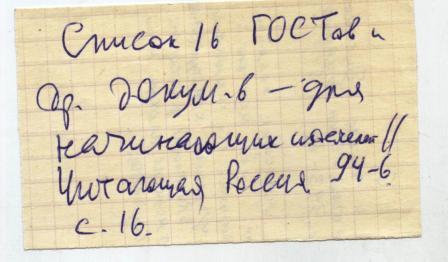 Список 16 ГОСТов и
др. докум-в — для
начинающих издателей //
Читающая Россия 94-6.
с. 16.